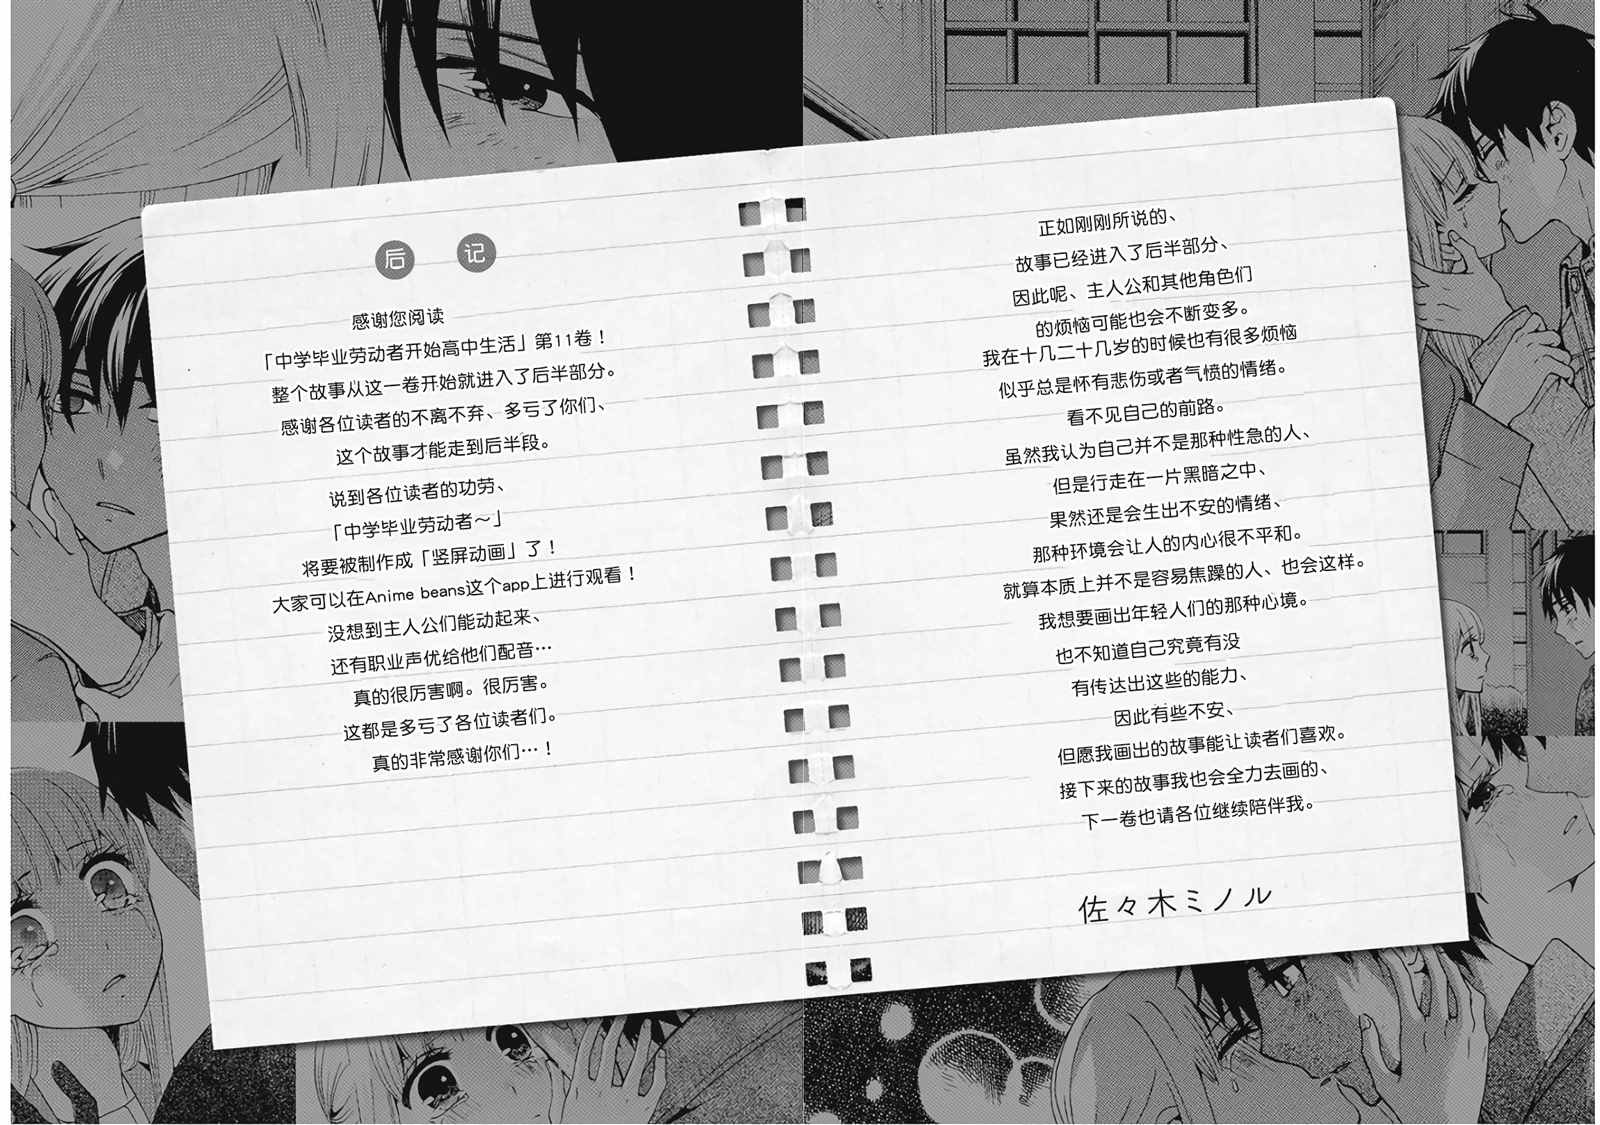 后 记
感谢您阅读
「中学毕业劳动者开始高中生活」第11卷！
整个故事从这一卷开始就进入了后半部分。
感谢各位读者的不离不弃、多亏了你们、
这个故事才能走到后半段。
说到各位读者的功劳、
「中学毕业劳动者～」
将要被制作成「竖屏动画」了！
大家可以在Anime beans这个app上进行观看！
没想到主人公们能动起来、
还有职业声优给他们配音…
真的很厉害啊。很厉害。
这都是多亏了各位读者们。
真的非常感谢你们…！
正如刚刚所说的、
故事已经进入了后半部分、
因此呢、主人公和其他角色们
的烦恼可能也会不断变多。
我在十几二十几岁的时候也有很多烦恼
似乎总是怀有悲伤或者气愤的情绪。
看不见自己的前路。
虽然我认为自己并不是那种性急的人、
但是行走在一片黑暗之中、
果然还是会生出不安的情绪、
那种环境会让人的内心很不平和。
就算本质上并不是容易焦躁的人、也会这样。
我想要画出年轻人们的那种心境。
也不知道自己究竟有没
有传达出这些的能力、
因此有些不安、
但愿我画出的故事能让读者们喜欢。
接下来的故事我也会全力去画的、
下一卷也请各位继续陪伴我。
佐々木ミノル